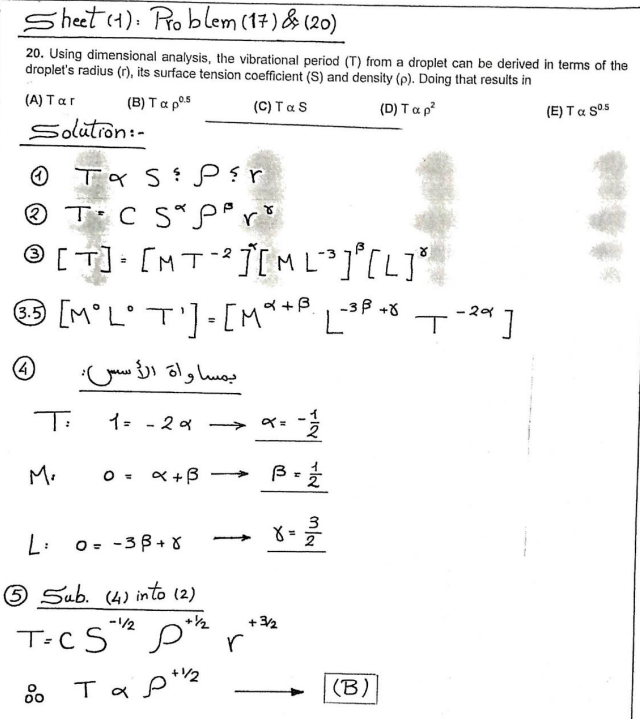 Sheet (1): Problem (17) & (20)
20. Using dimensional analysis, the vibrational period (T) from a droplet can be derived in terms of the
droplet's radius (r), its surface tension coefficient (S) and density (ρ). Doing that results in
(A) T α r (B) T α ρ^0.5 (C) T α S (D) T α ρ^2 (E) T α S^0.5
Solution:-
① T α S ; ρ ; r
② T = C S^α ρ^β r^γ
③ [T] = [M T^-2]^α [M L^-3]^β [L]^γ
3.5 [M^0 L^0 T^1] = [M^α+β L^-3β+γ T^-2α]
④ بمساواة الأسس:
T: 1 = -2α → α = -1/2
M: 0 = α+β → β = 1/2
L: 0 = -3β+γ → γ = 3/2
⑤ Sub. (4) into (2)
T = C S^-1/2 ρ^+1/2 r^+3/2
∴ T α ρ^+1/2 → (B)